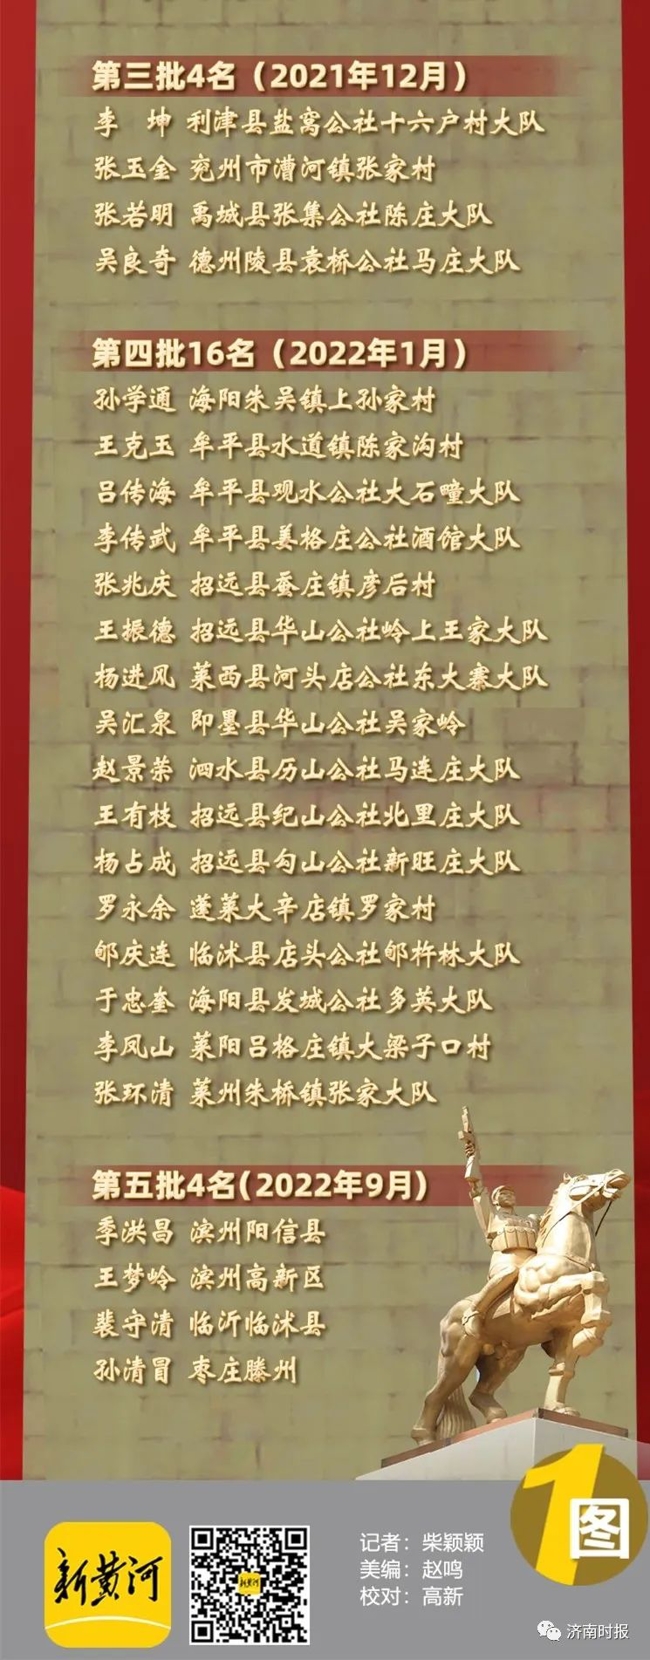 第三批4名（2021年12月）
李 坤 利津县盐窝公社十六户村大队
张玉金 兖州市漕河镇张家村
张若明 禹城县张集公社陈庄大队
吴良奇 德州陵县袁桥公社马庄大队
第四批16名（2022年1月）
孙学通 海阳朱吴镇上孙家村
王克玉 牟平县水道镇陈家沟村
吕传海 牟平县观水公社大石疃大队
李传武 牟平县姜格庄公社酒馆大队
张兆庆 招远县蚕庄镇彦后村
王振德 招远县华山公社岭上王家大队
杨进风 莱西县河头店公社东大寨大队
吴汇泉 即墨县华山公社吴家岭
赵景荣 泗水县历山公社马连庄大队
王有枝 招远县纪山公社北里庄大队
杨占成 招远县勾山公社新旺庄大队
罗永余 蓬莱大辛店镇罗家村
郇庆连 临沭县店头公社郇杵林大队
于忠奎 海阳县发城公社多英大队
李凤山 莱阳吕格庄镇大梁子口村
张环清 莱州朱桥镇张家大队
第五批4名(2022年9月)
季洪昌 滨州阳信县
王梦岭 滨州高新区
裴守清 临沂临沭县
孙清冒 枣庄滕州
1图
新黄河
新黄河
记者：柴颖颖
美编：赵鸣
校对：高新
济南时报